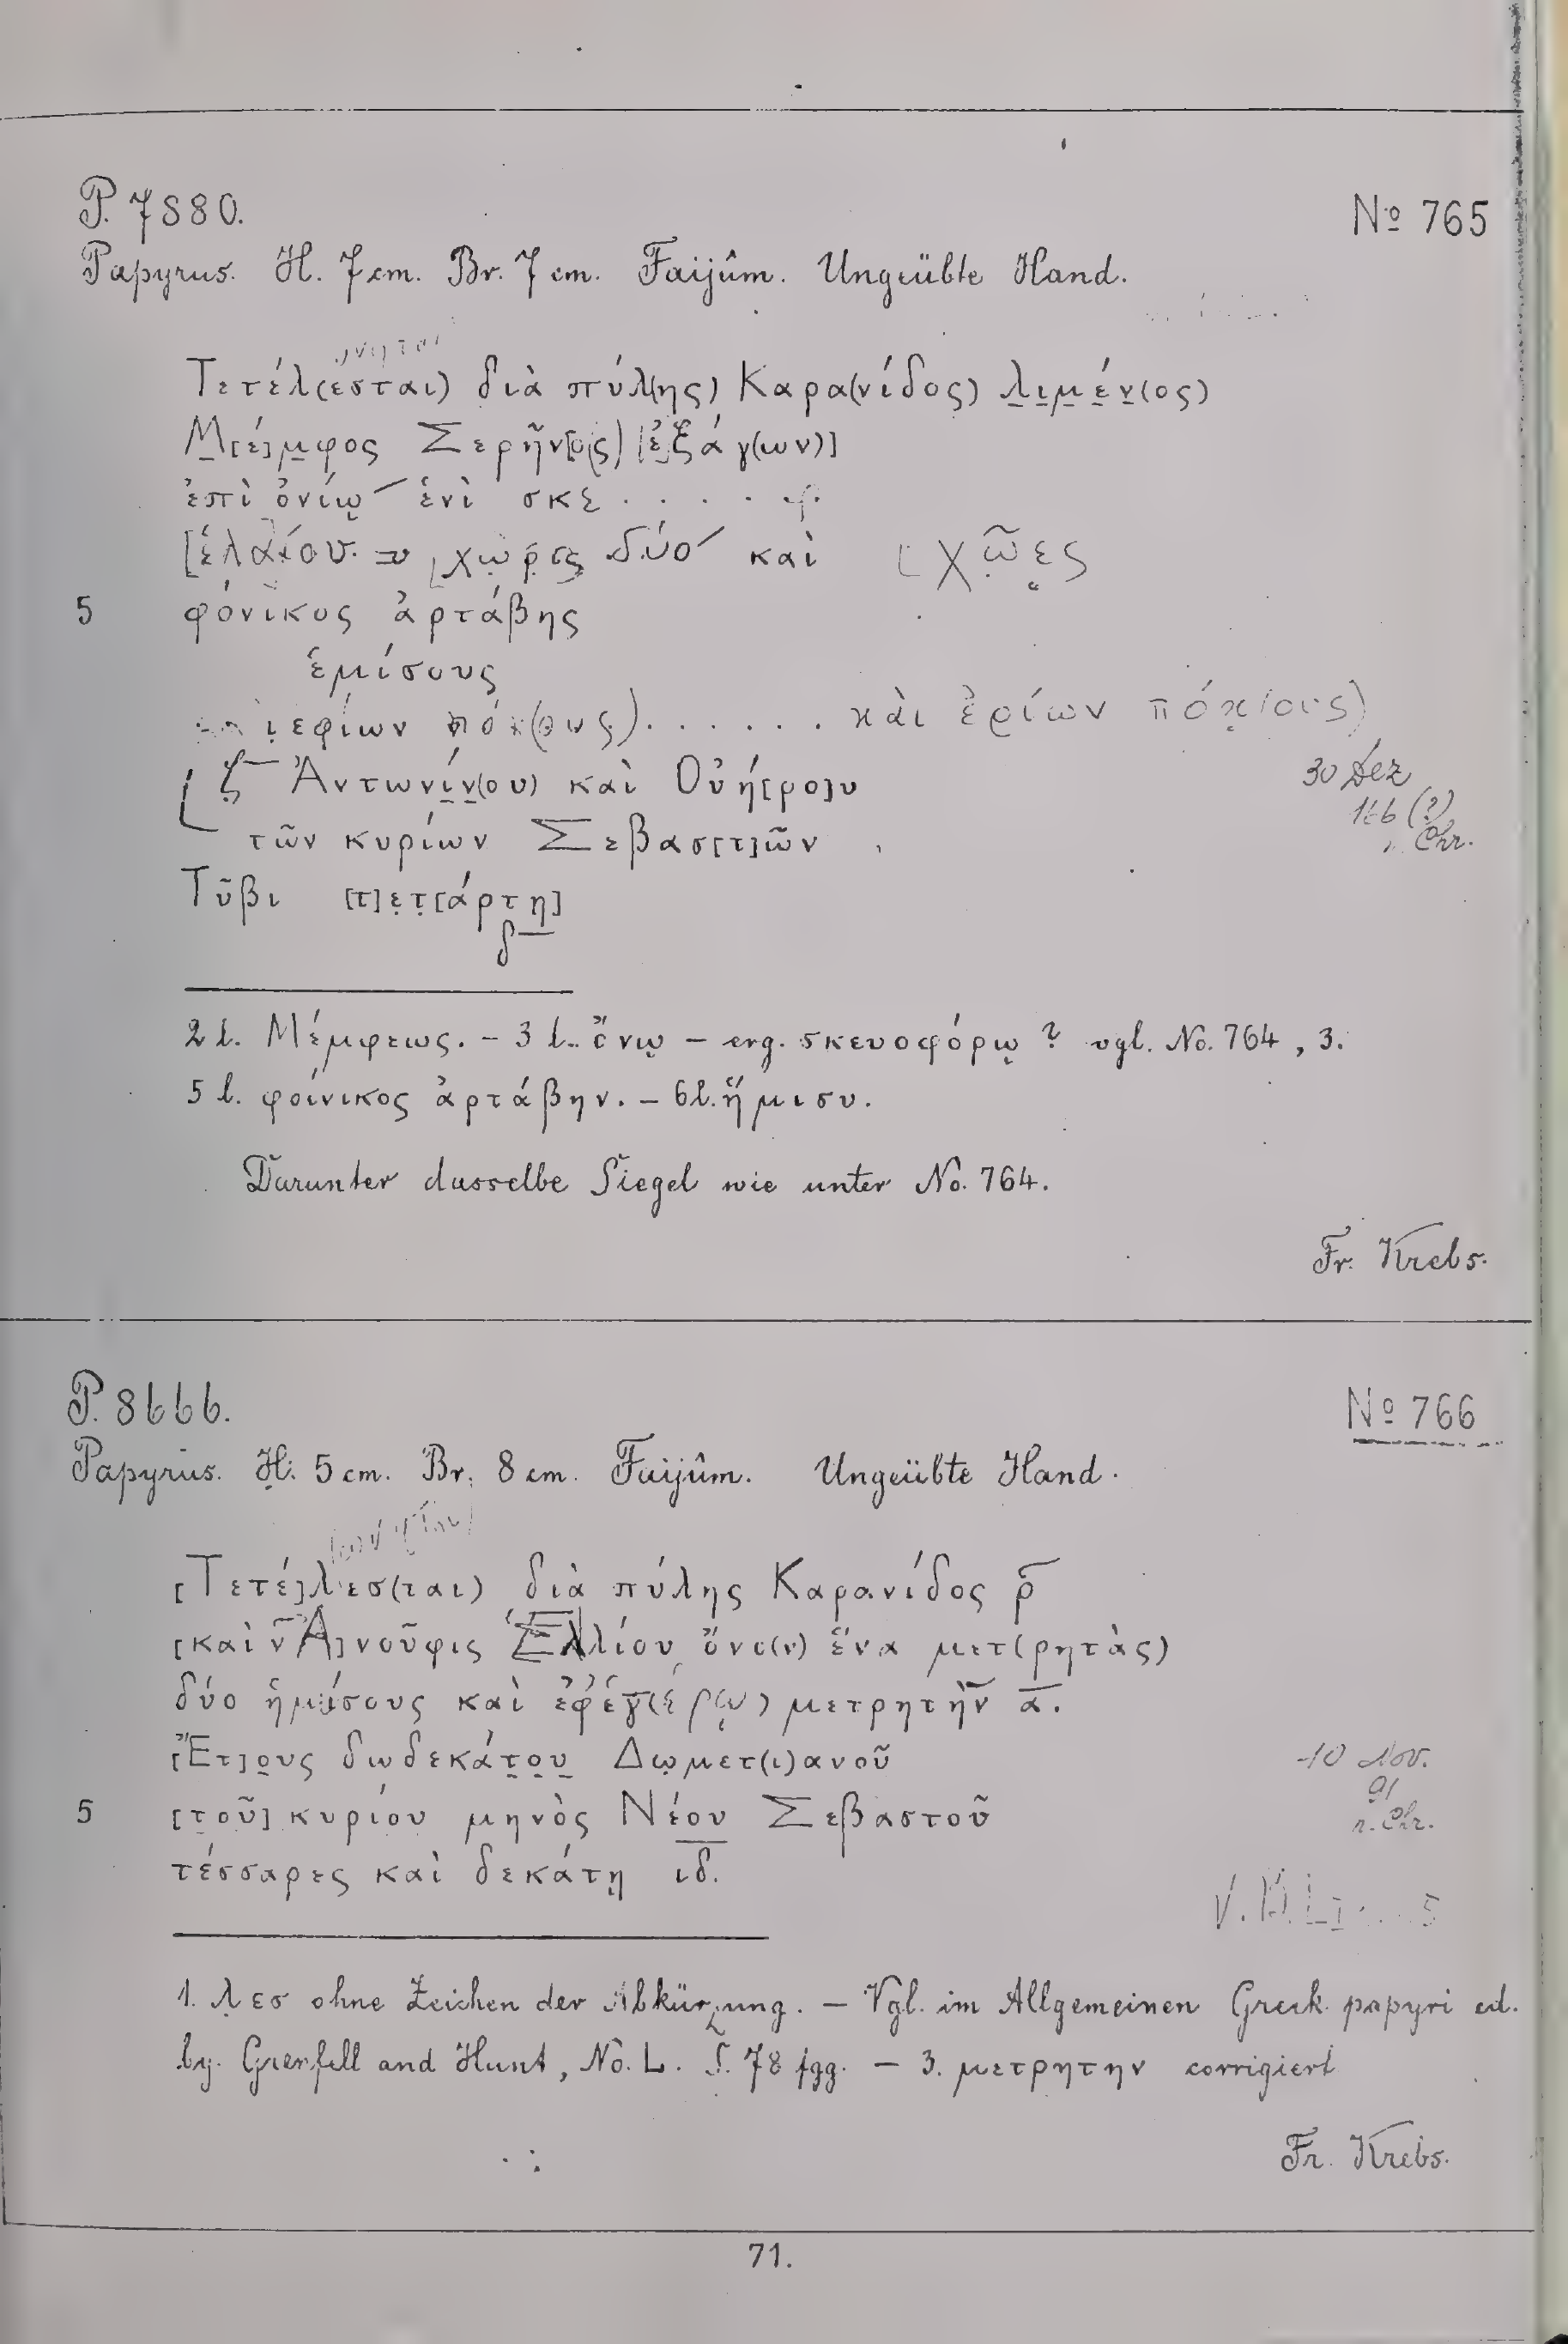 P. 7880.
No 765
Papyrus. H. 7 cm. Br. 7 cm. Faijûm. Ungeübte Hand.
Τετέλ(εσται) διὰ πύλ(ης) Καρα(νίδος) λιμέν(ος)
Μ[έ]μφος Σερῆν[ο(ς)] [ἐξάγ(ων)]
ἐπὶ ὀνίῳ ἑνὶ σκε . . . . φ.
[ἐλαίου δύο καὶ [χῶες
5 φόνικος ἀρτάβης
ἑμίσους
ιεφίων πόκ(ους) . . . . . . κὰι ἐρίων πόκ(ους)
ζ Ἀντωνίν(ου) καὶ Οὐή[ρο]υ
30 Dez
166 (?)
Chr.
τῶν κυρίων Σεβασ[τ]ῶν
Τῦβι [τ]ετ[άρτη]
δ
2 l. Μέμφεως. – 3 l. ὄνῳ – erg. σκευοφόρῳ ? vgl. No. 764, 3.
5 l. φοίνικος ἀρτάβην. – 6 l. ἥμισυ.
Darunter dasselbe Siegel wie unter No. 764.
Fr. Krebs.
P. 8666.
No 766
Papyrus. H. 5 cm. Br. 8 cm. Faijûm. Ungeübte Hand.
[Τετέ]λεσ(ται) διὰ πύλης Καρανίδος ρ̄
[καὶ ν̄ Ἁ]νοῦφις λλίου ὄνο(ν) ἕνα μετ(ρητὰς)
δύο ἡμίσους καὶ μετρητὴν ᾱ.
[Ἔτ]ους δωδεκάτου Δωμετ(ι)ανοῦ
10 Nov.
91
n. Chr.
5 [τοῦ] κυρίου μηνὸς Νέου Σεβαστοῦ
τέσσαρες καὶ δεκάτῃ ιδ.
1. λεσ ohne Zeichen der Abkürzung. – Vgl. im Allgemeinen Greek papyri ed.
by. Grenfell and Hunt, No. L. S. 78 fgg. – 3. μετρητην corrigiert
Fr. Krebs.
71.